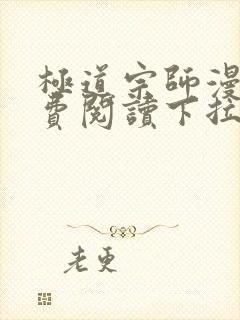 極道宗師漫
費閱讀下拉
老更